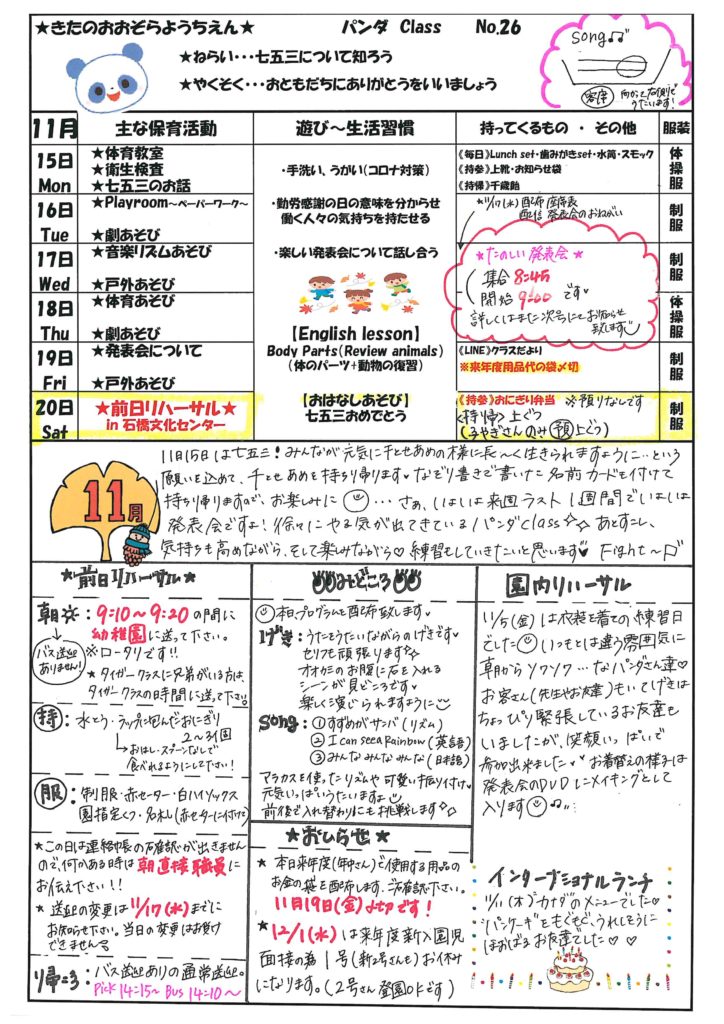 ★きたのおおぞらようちえん★ パンダ Class No.26
★ねらい・・・七五三について知ろう
★やくそく・・・おともだちにありがとうをいいましょう
song♫
客席 向かって右側で
うたいます!
11月 主な保育活動 遊び～生活習慣 持ってくるもの ・ その他 服装
15日
Mon
★体育教室
★衛生検査
★七五三のお話
・手洗い、うがい(コロナ対策)
《毎日》Lunch set・歯みがきset・水筒・スモック
《持参》上靴・お知らせ袋
《持帰》千歳飴
体操服
16日
Tue
★Playroom～ペーパーワーク～
★劇あそび
・勤労感謝の日の意味を分からせ
働く人々の気持ちを持たせる
*11/17(水)配布 座席表
配信 発表会のおねがい
制服
17日
Wed
★音楽リズムあそび
★戸外あそび
・楽しい発表会について話し合う
★たのしい発表会★
集合 8:45
開始 9:00 です♥
詳しくはまた次号にてお知らせ
致します
制服
18日
Thu
★体育あそび
★劇あそび
【English lesson】
Body Parts(Review animals)
(体のパーツ+動物の復習)
体操服
19日
Fri
★発表会について
★戸外あそび
《LINE》クラスだより
※来年度用品代の袋〆切
制服
20日
Sat
★前日リハーサル★
in 石橋文化センター
【おはなしあそび】
七五三おめでとう
《持参》おにぎり弁当 ※預りなしです
《持帰》上ぐつ
(こやぎさんのみ預上ぐつ)
制服
11月
11月15日は七五三!みんなが元気に千とせあめの様に長～く生きられますように…という
願いを込めて、千とせあめを持ち帰ります♥なぞり書きで書いた名前カードを付けて
持ち帰りますので、お楽しみに…さぁ、いよいよ来週ラスト1週間でいよいよ
発表会ですよ!徐々にやる気が出てきているパンダclass☆☆あと少し、
気持ちも高めながら、そして楽しみながら♡練習をしていきたいと思います♥ Fight～
★前日リハーサル★
朝: 9:10～9:20の間に
幼稚園に送って下さい。
バス送迎ありません!
※ロータリです!!
★タイガークラスに兄弟がいる方は、
タイガークラスの時間に送って下さい。
持: 水とう・ラップに包んだおにぎり
2～3個
おはし・スプーンなしで
食べれるようにして下さい!
服: 制服・赤セーター・白ハイソックス
園指定くつ・名札(赤セーターに付けて)
★この日は連絡帳の確認が出きませんの
で、何かある時は朝直接職員に
お伝え下さい!!
★送迎の変更は11/17(水)までに
お知らせ下さい。当日の変更はお受け
できません
帰: バス送迎ありの通常送迎。
Pick 14:15～ Bus 14:10～
みどころ
本日、プログラムを配布致します♥
げき: うたとうたいながらのげきです♥
セリフも頑張ります☆
オオカミのお腹に石を入れる
シーンが見どころです♥
楽しく演じられますように
Song: ①すずめがサンバ(リズム)
②I can see a Rainbow(英語)
③みんなみんなみんな(日本語)
マラカスを使ったリズムや可愛い振り付け♥
元気いっぱいうたいますよ
前後で入れ替わりにも挑戦します☆
★おしらせ★
★本日来年度(年中さん)で使用する用品の
お金の袋を配布します。ご確認下さい。
11月19日(金)〆切です!
★12/1(水)は来年度新入園児
面接の為1号(新2号さんも)お休み
になります。(2号さん登園OKです)
園内リハーサル
11/5(金)は衣装を着ての練習日
でした いつもとは違う雰囲気に
朝からソワソワ…なパンダさん達♡
お客さん(先生やお友達)もいてげきは
ちょっぴり緊張しているお友達も
いましたが、笑顔いっぱいで
参加出来ました♥お着替えの様子は
発表会のDVDにメイキングとして
入ります♫
インターナショナルランチ
11/11(木)カナダのメニューでした♡
パンケーキをもぐもぐ、うれしそうに
ほおばるお友達でした♡♡